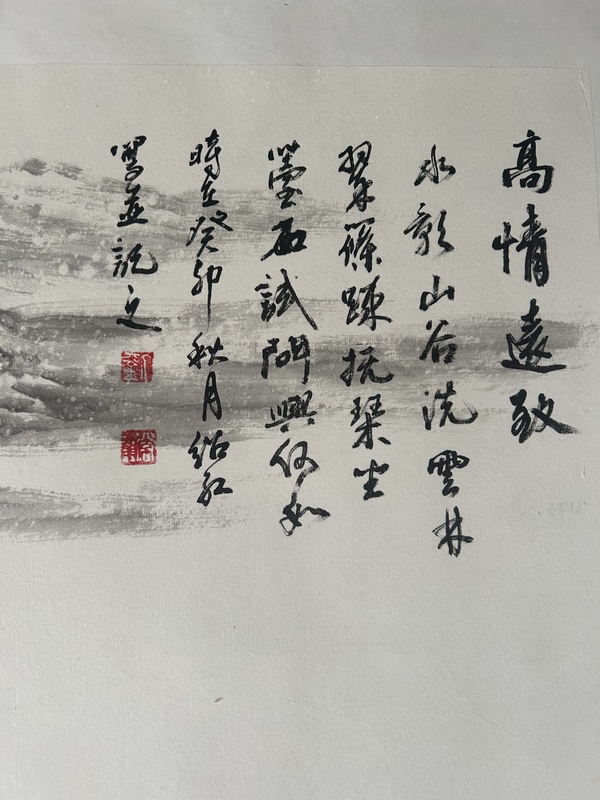 高情遠致
水影山谷洗雲林
翠篠踈抚琴坐
瑩石試問興何如
時在癸卯秋月紹紅
寫並記之